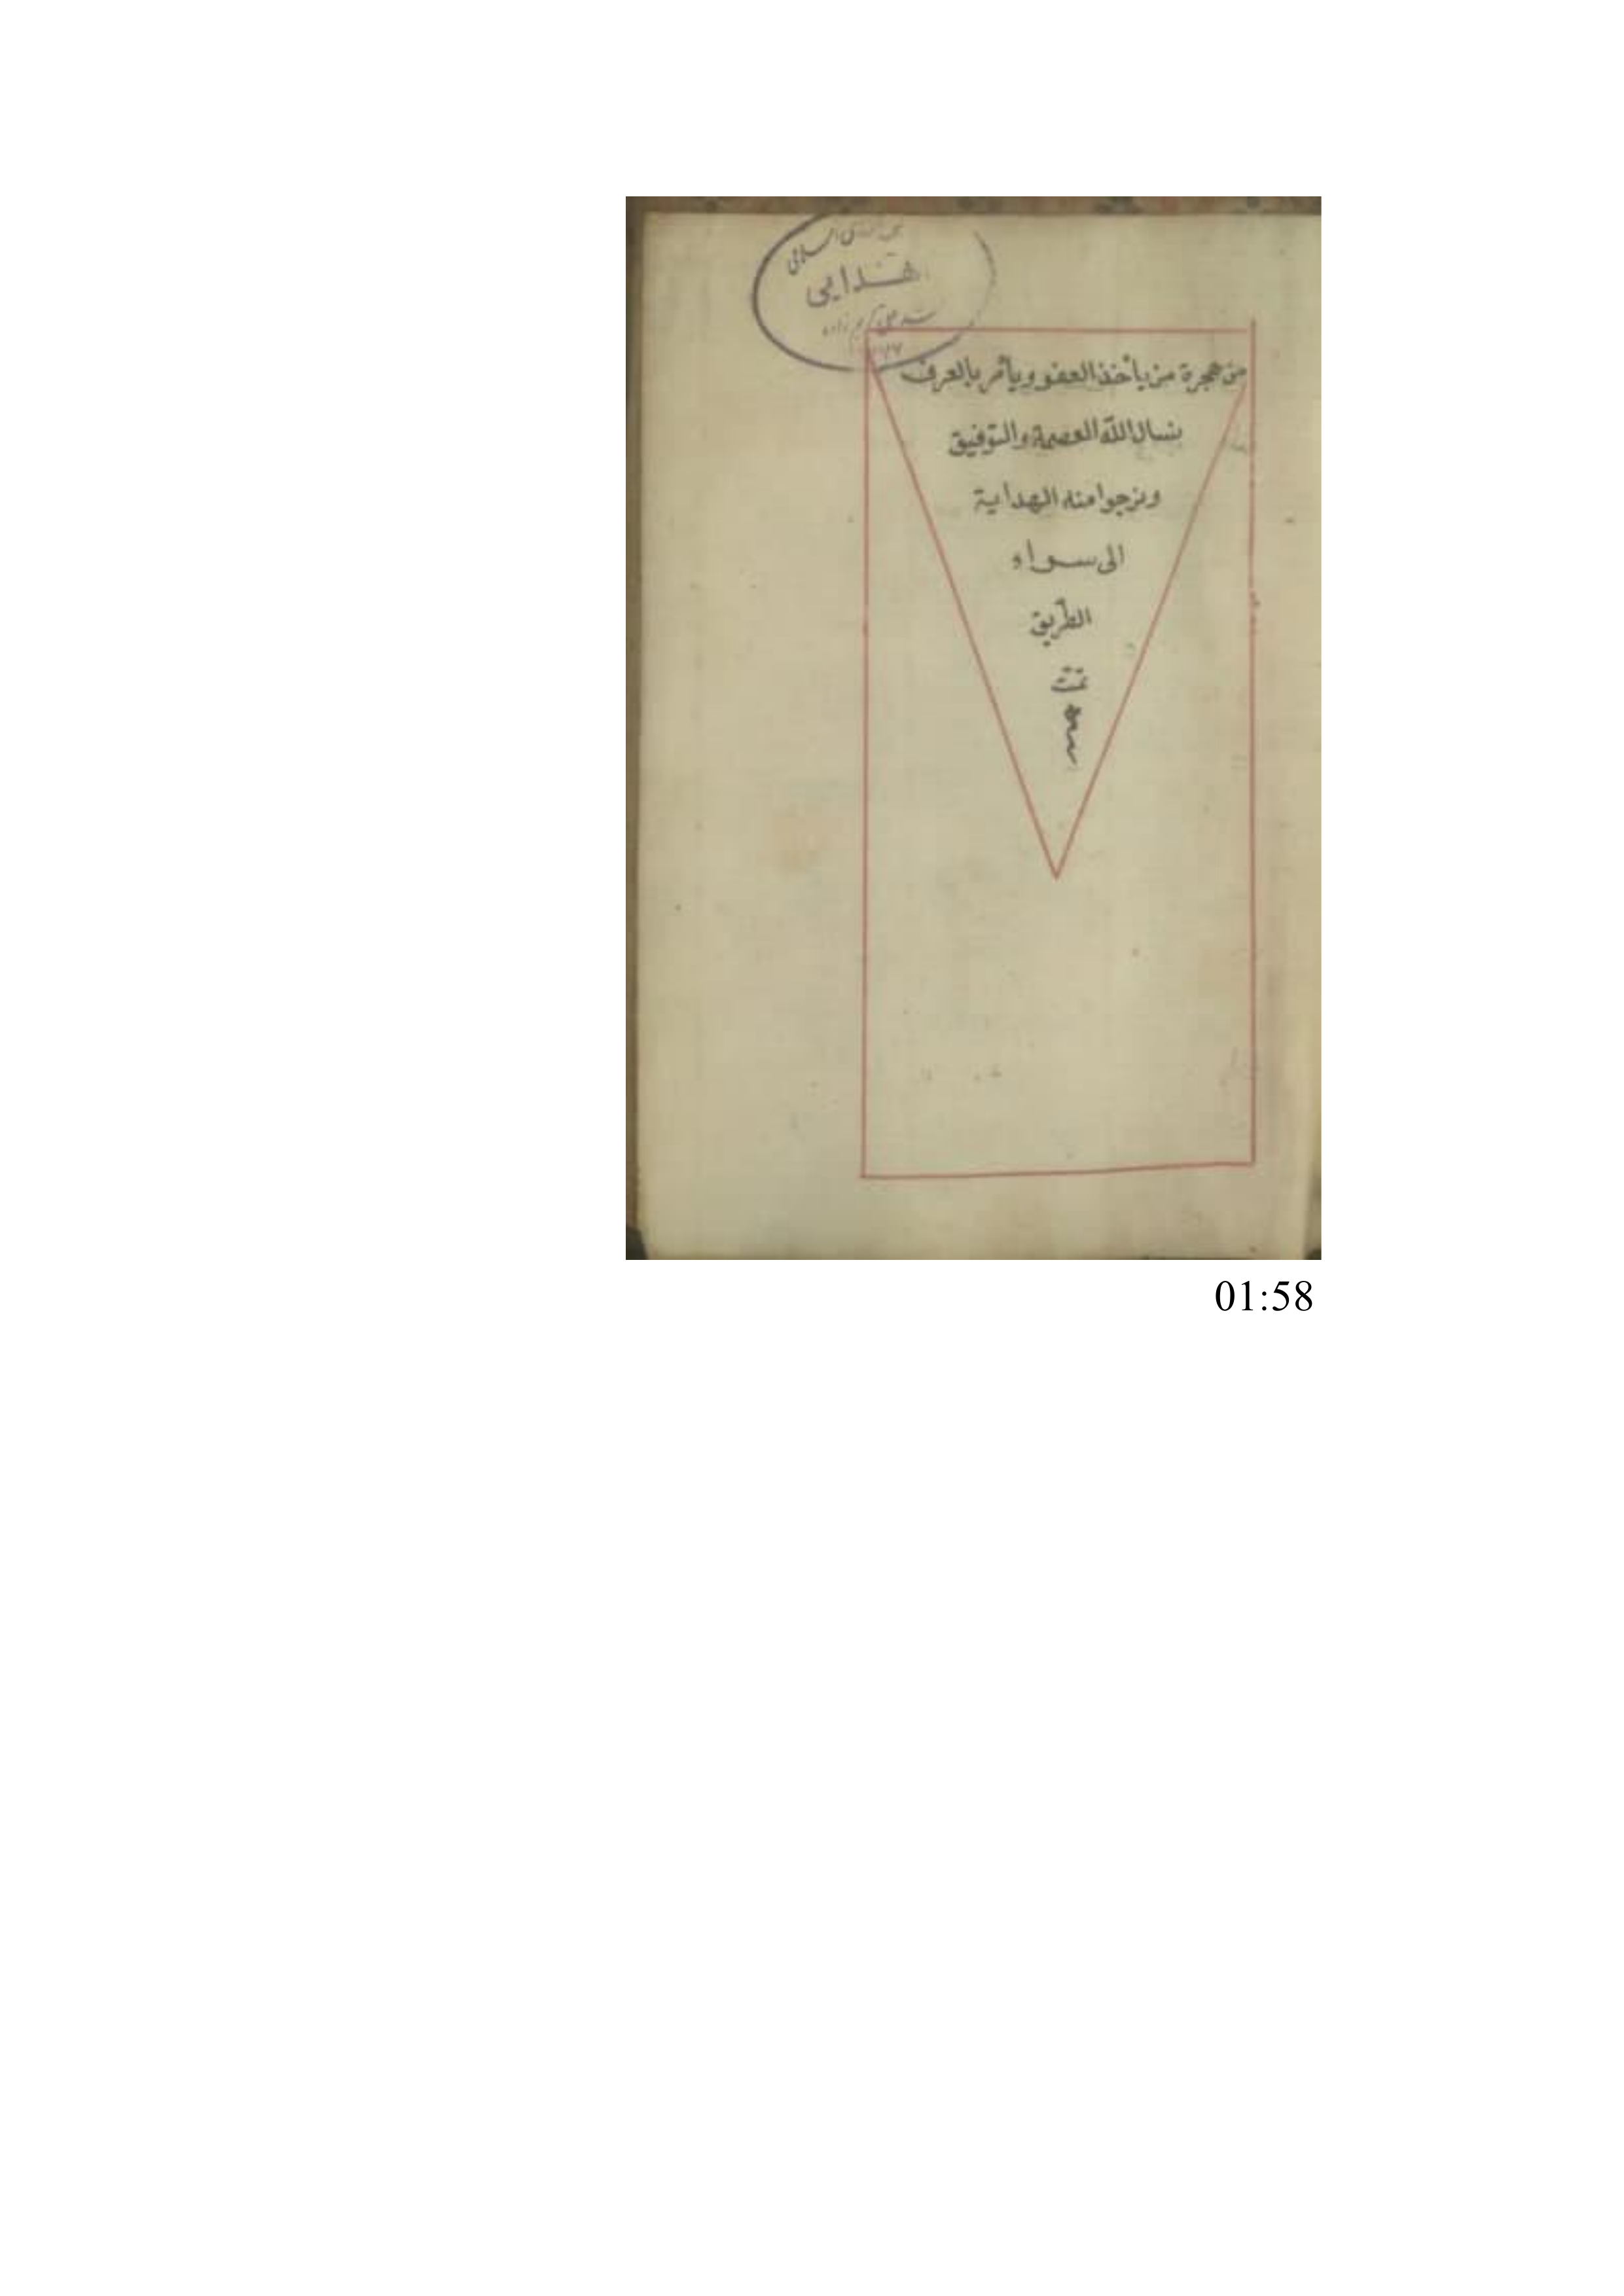 هدایی
من هجرة من يأخذ العفو ويأمر بالعرف
نسال الله العصمة والتوفيق
ونرجوا منه الهداية
الى سواء
الطريق
تمت
01:58